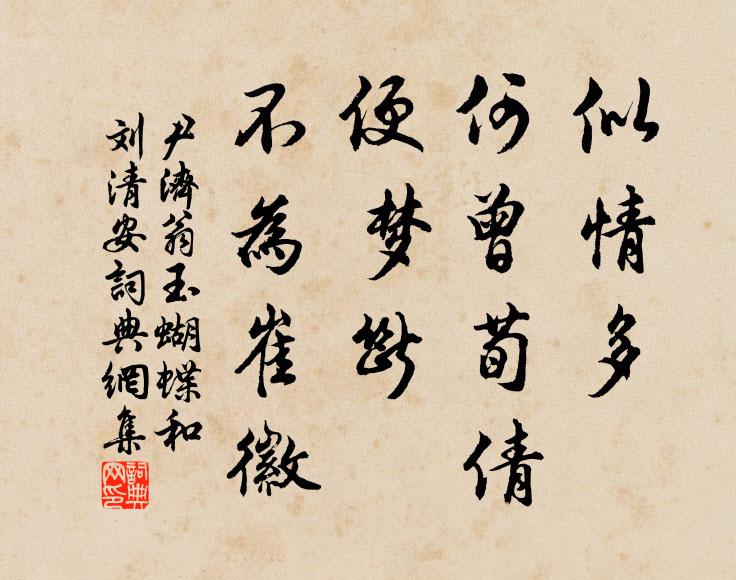 似情多
何曾荀倩
便梦断
不為崔徽
尹濟翁玉蝴蝶和
刘清安詞典網集
詞典网印